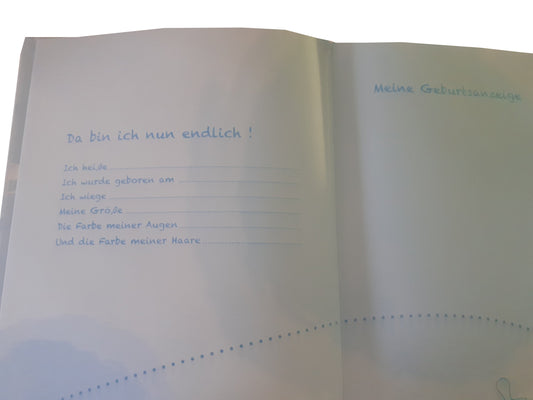 Da bin ich nun endlich !
Ich heiße
Ich wurde geboren am
Ich wiege
Meine Größe
Die Farbe meiner Augen
Und die Farbe meiner Haare
Meine Geburtsanzeige